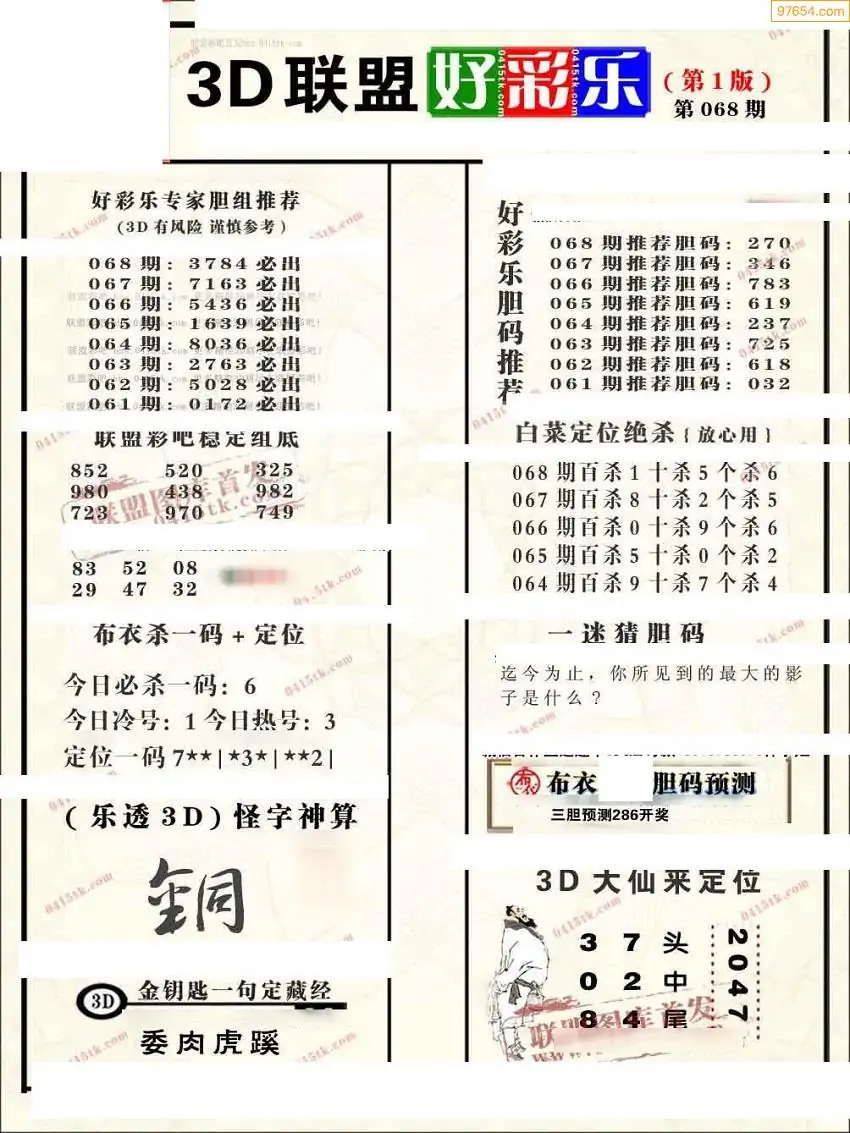 97654.com
3D联盟好彩乐（第1版）
第068期
好彩乐专家胆组推荐
（3D有风险 谨慎参考）
068期：3784必出
067期：7163必出
066期：5436必出
065期：1639必出
064期：8036必出
063期：2763必出
062期：5028必出
061期：0172必出
联盟彩吧稳定组底
852 520 325
980 438 982
723 970 749
83 52 08
29 47 32
布衣杀一码+定位
今日必杀一码：6
今日冷号：1 今日热号：3
定位一码7**|*3*|**2|
(乐透3D)怪字神算
銅
3D 金钥匙一句定藏经
委肉虎蹊
好彩乐胆码推荐
068期推荐胆码：270
067期推荐胆码：346
066期推荐胆码：783
065期推荐胆码：619
064期推荐胆码：237
063期推荐胆码：725
062期推荐胆码：618
061期推荐胆码：032
白菜定位绝杀{放心用}
068期百杀1十杀5个杀6
067期百杀8十杀2个杀5
066期百杀0十杀9个杀6
065期百杀5十杀0个杀2
064期百杀9十杀7个杀4
一迷猜胆码
迄今为止，你所见到的最大的影
子是什么？
布衣 胆码预测
三胆预测286开奖
3D大仙来定位
3 7 头
0 2 中
8 4 尾
2047
联盟图库首发
0415tk.com